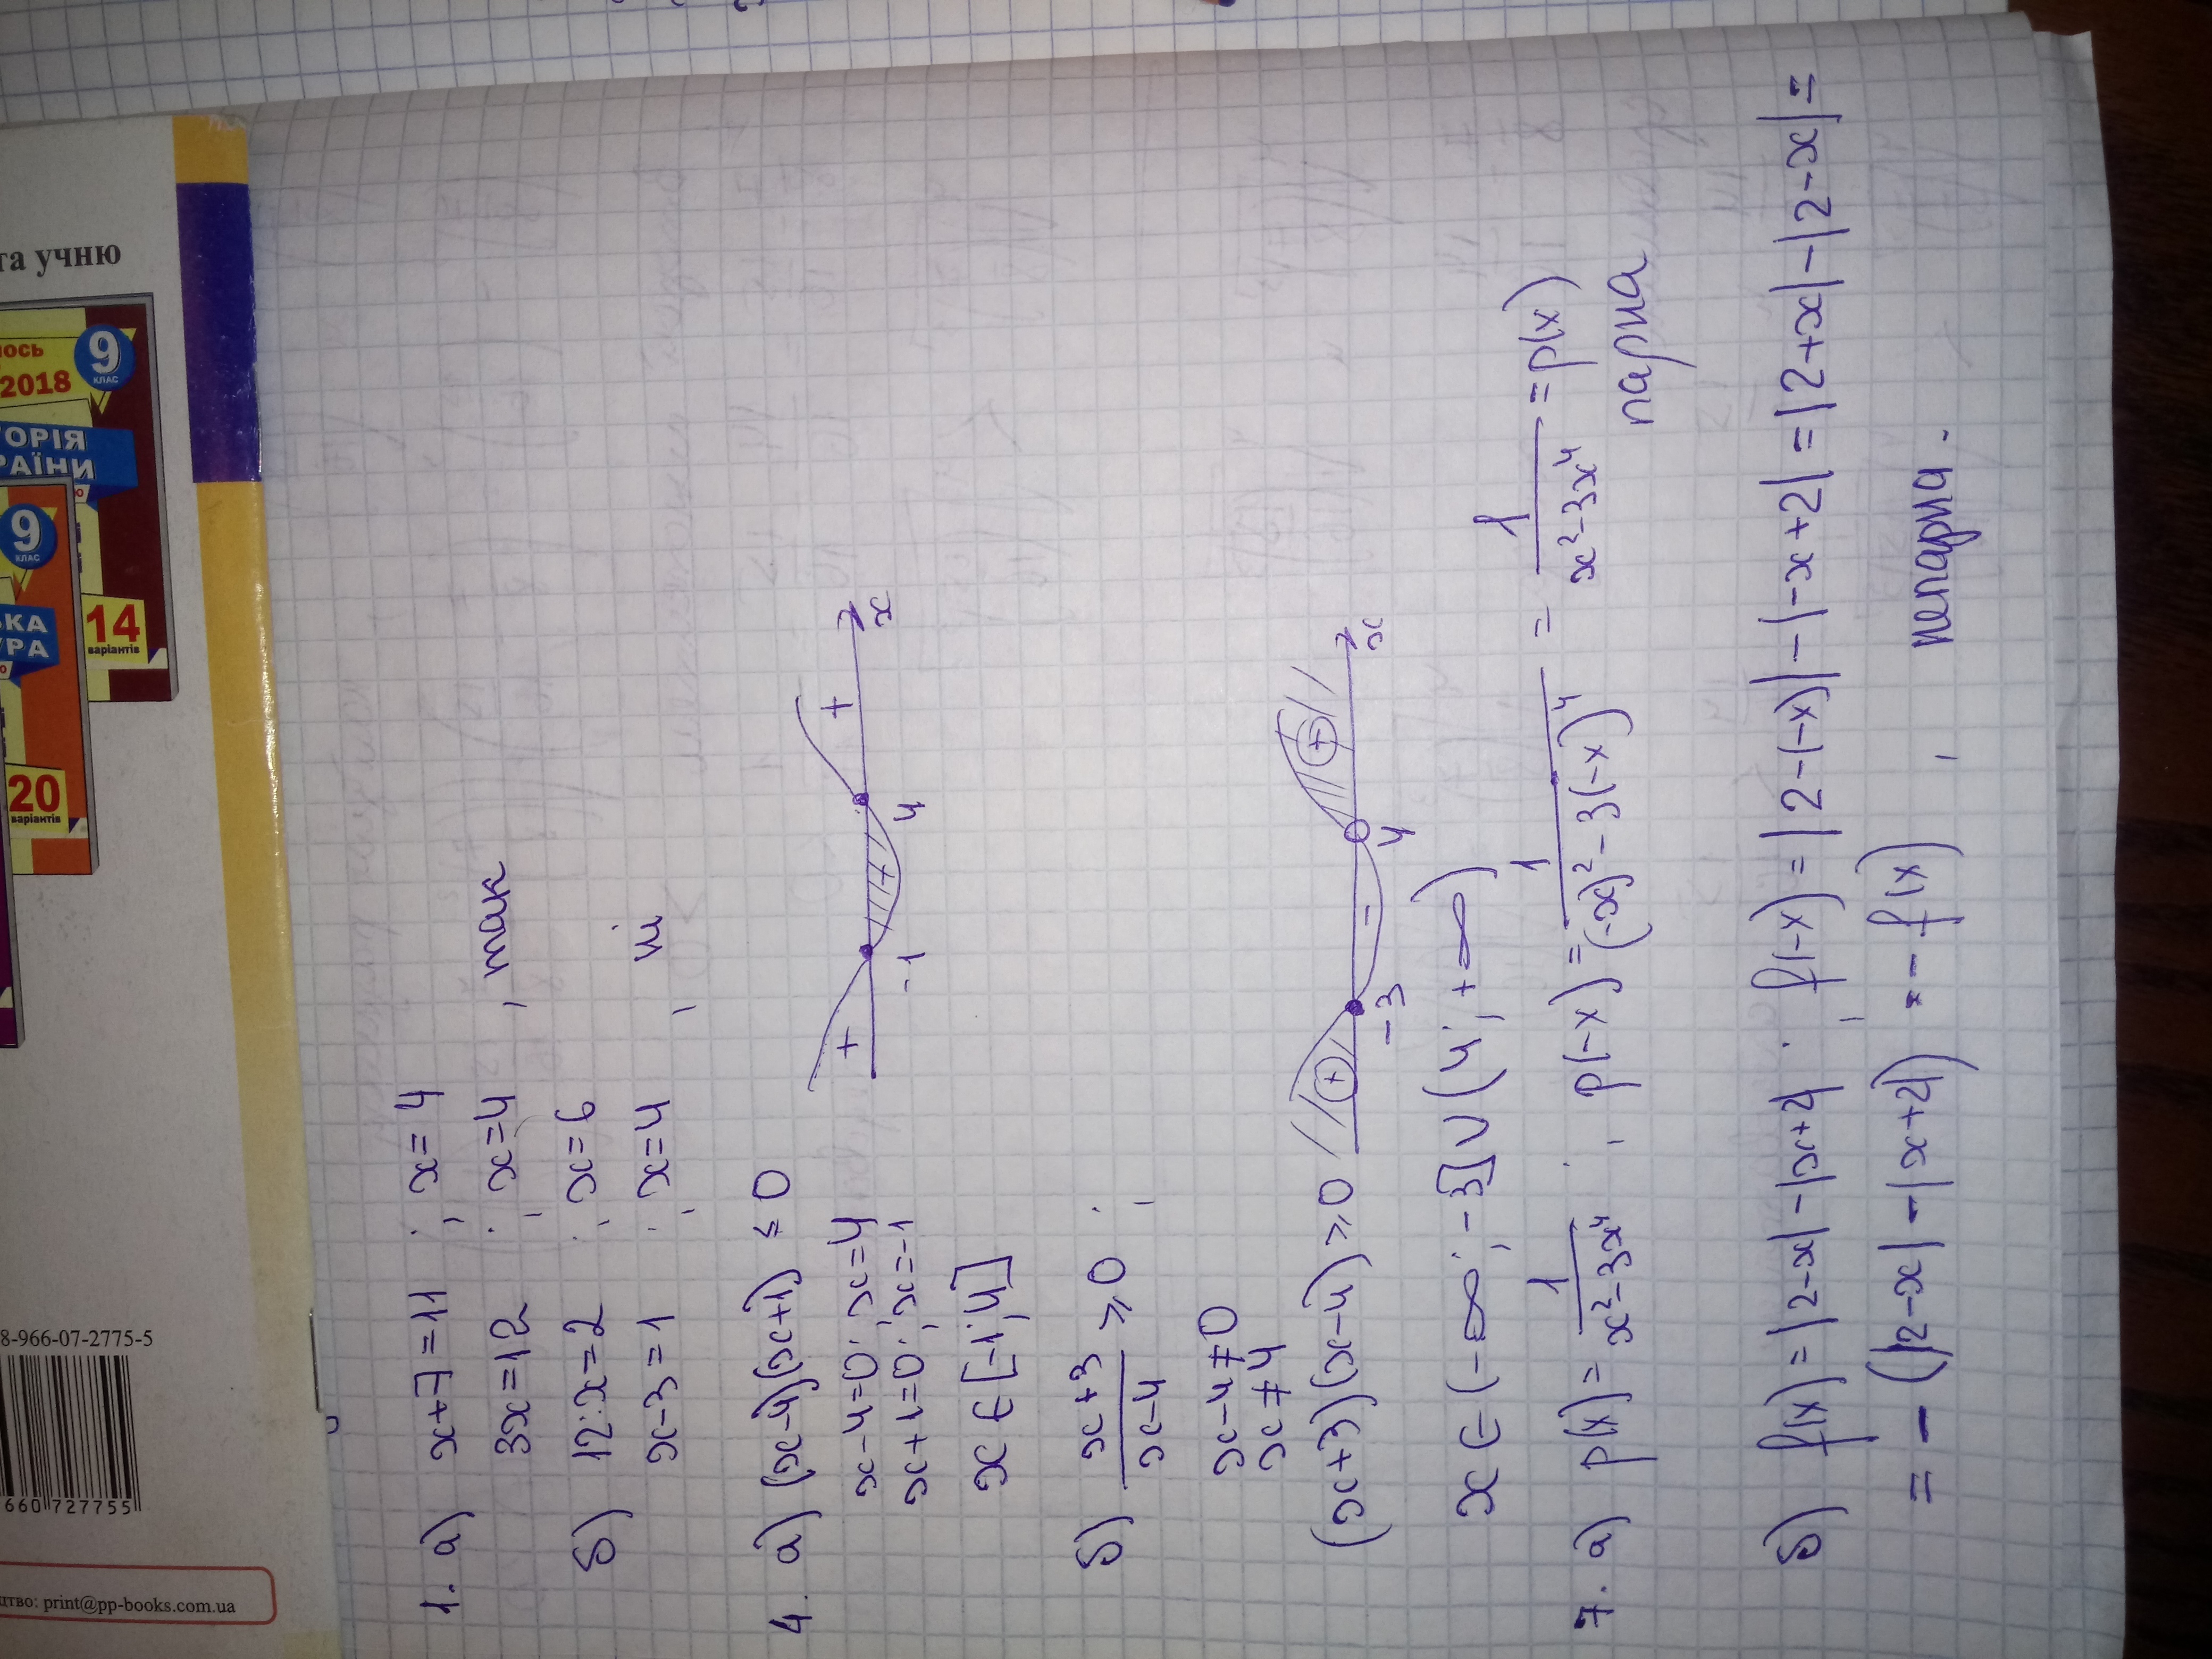 та учню
ОСЬ
2018
9
КЛАС
ТОРІЯ
РАЇНИ
14
варіантів
9
КЛАС
ЬКА
УРА
20
варіантів
8-966-07-2775-5
660 727755
цтво: print@pp-books.com.ua
1. а) x+7=11 ; x=4
3x=12 ; x=4 , так
б) 12:x=2 ; x=6
x-3=1 ; x=4 , ні
4. а) (x-4)(x+1) ≤ 0
x-4=0; x=4
x+1=0; x=-1
+ + + -1 4 x
x ∈ [-1; 4]
б) (x+3)/(x-4) ≥ 0 ;
x-4≠0
x≠4
(x+3)(x-4) ≥ 0
+ - + -3 4 x
x ∈ (-∞; -3] ∪ (4; +∞)
7. а) p(x) = 1/(x²-3x⁴) ; p(-x) = 1/((-x)²-3(-x)⁴) = 1/(x²-3x⁴) = p(x)
парна
б) f(x) = |2-x| - |x+2| ; f(-x) = |2-(-x)| - |-x+2| = |2+x| - |2-x| =
= - (|2-x| - |x+2|) = - f(x) , непарна.